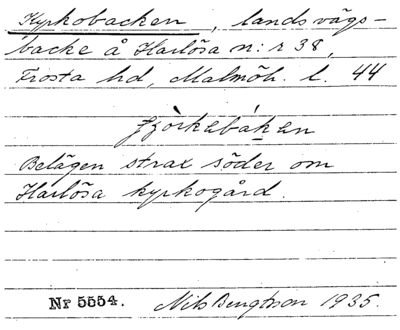 Kyrkobacken, landsvägs-
backe å Harlösa n:r 38,
Frosta hd, Malmöh. l. 44
Belägen strax söder om
Harlösa kyrkogård.
Nr 5554. Nils Bengtson 1935.